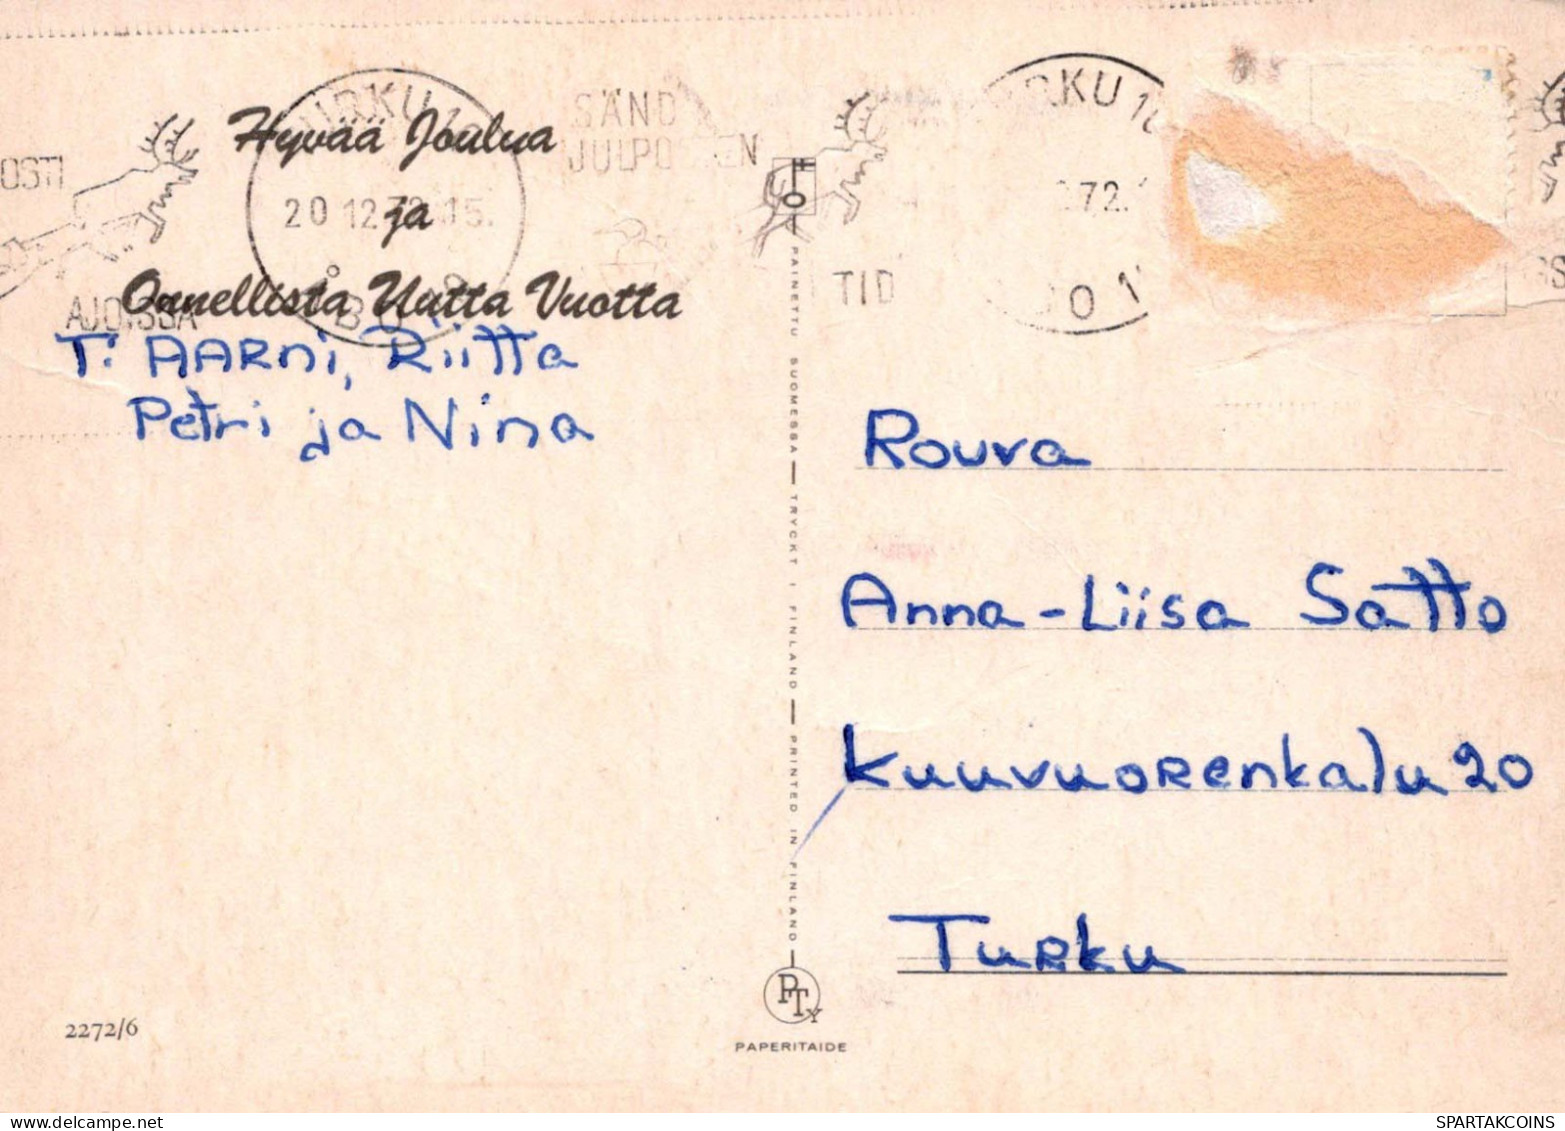 Hyvää Joulua
ja
Onnellista Uutta Vuotta
T: AARNi, Riitta
Petri ja Nina
TURKU 10
20.12.72.15.
ÅBO
SÄND
TID
AJOISSA
72.
PAINETTU SUOMESSA — TRYCKT I FINLAND — PRINTED IN FINLAND
Rouva
Anna-Liisa Satto
Kuuvuorenkatu 20
Turku
2272/6
PTy
PAPERITAIDE
SPARTAKCOINS